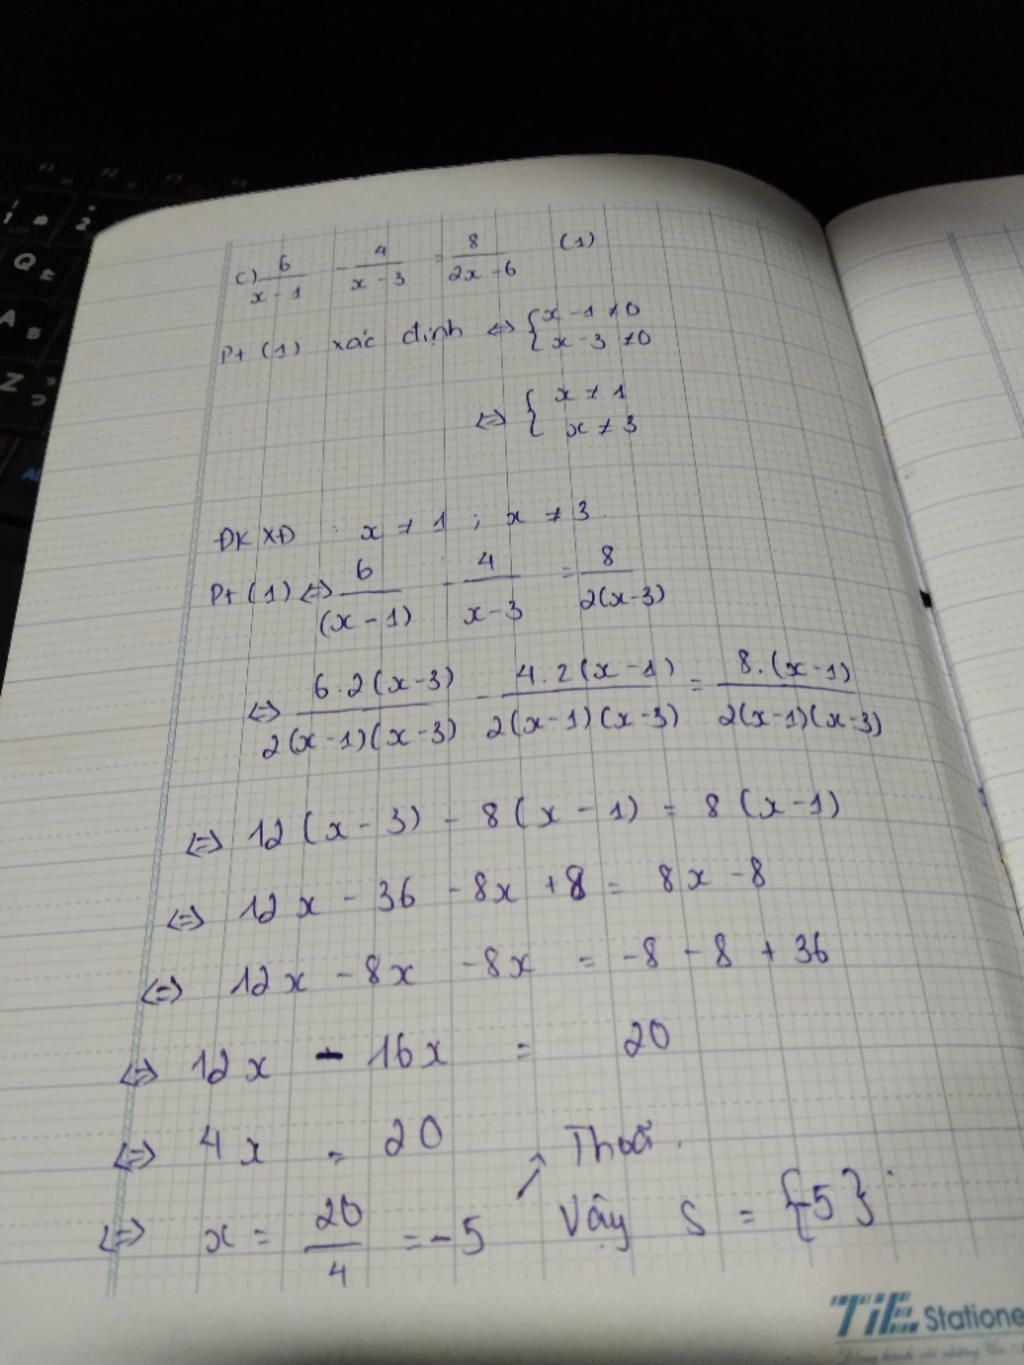 c) 6/(x - 1) - 4/(x - 3) = 8/(2x - 6) (1)
Pt (1) xác định <=> { x - 1 ≠ 0
x - 3 ≠ 0
<=> { x ≠ 1
x ≠ 3
ĐKXĐ : x ≠ 1 ; x ≠ 3.
Pt (1) <=> 6/(x - 1) - 4/(x - 3) = 8/(2(x - 3))
<=> 6.2(x - 3)/(2(x - 1)(x - 3)) - 4.2(x - 1)/(2(x - 1)(x - 3)) = 8.(x - 1)/(2(x - 1)(x - 3))
<=> 12(x - 3) - 8(x - 1) = 8(x - 1)
<=> 12x - 36 - 8x + 8 = 8x - 8
<=> 12x - 8x - 8x = -8 - 8 + 36
<=> 12x - 16x = 20
<=> 4x = 20
Thoã.
<=> x = 20/4 = -5 Vậy S = {-5}
TiE Statione